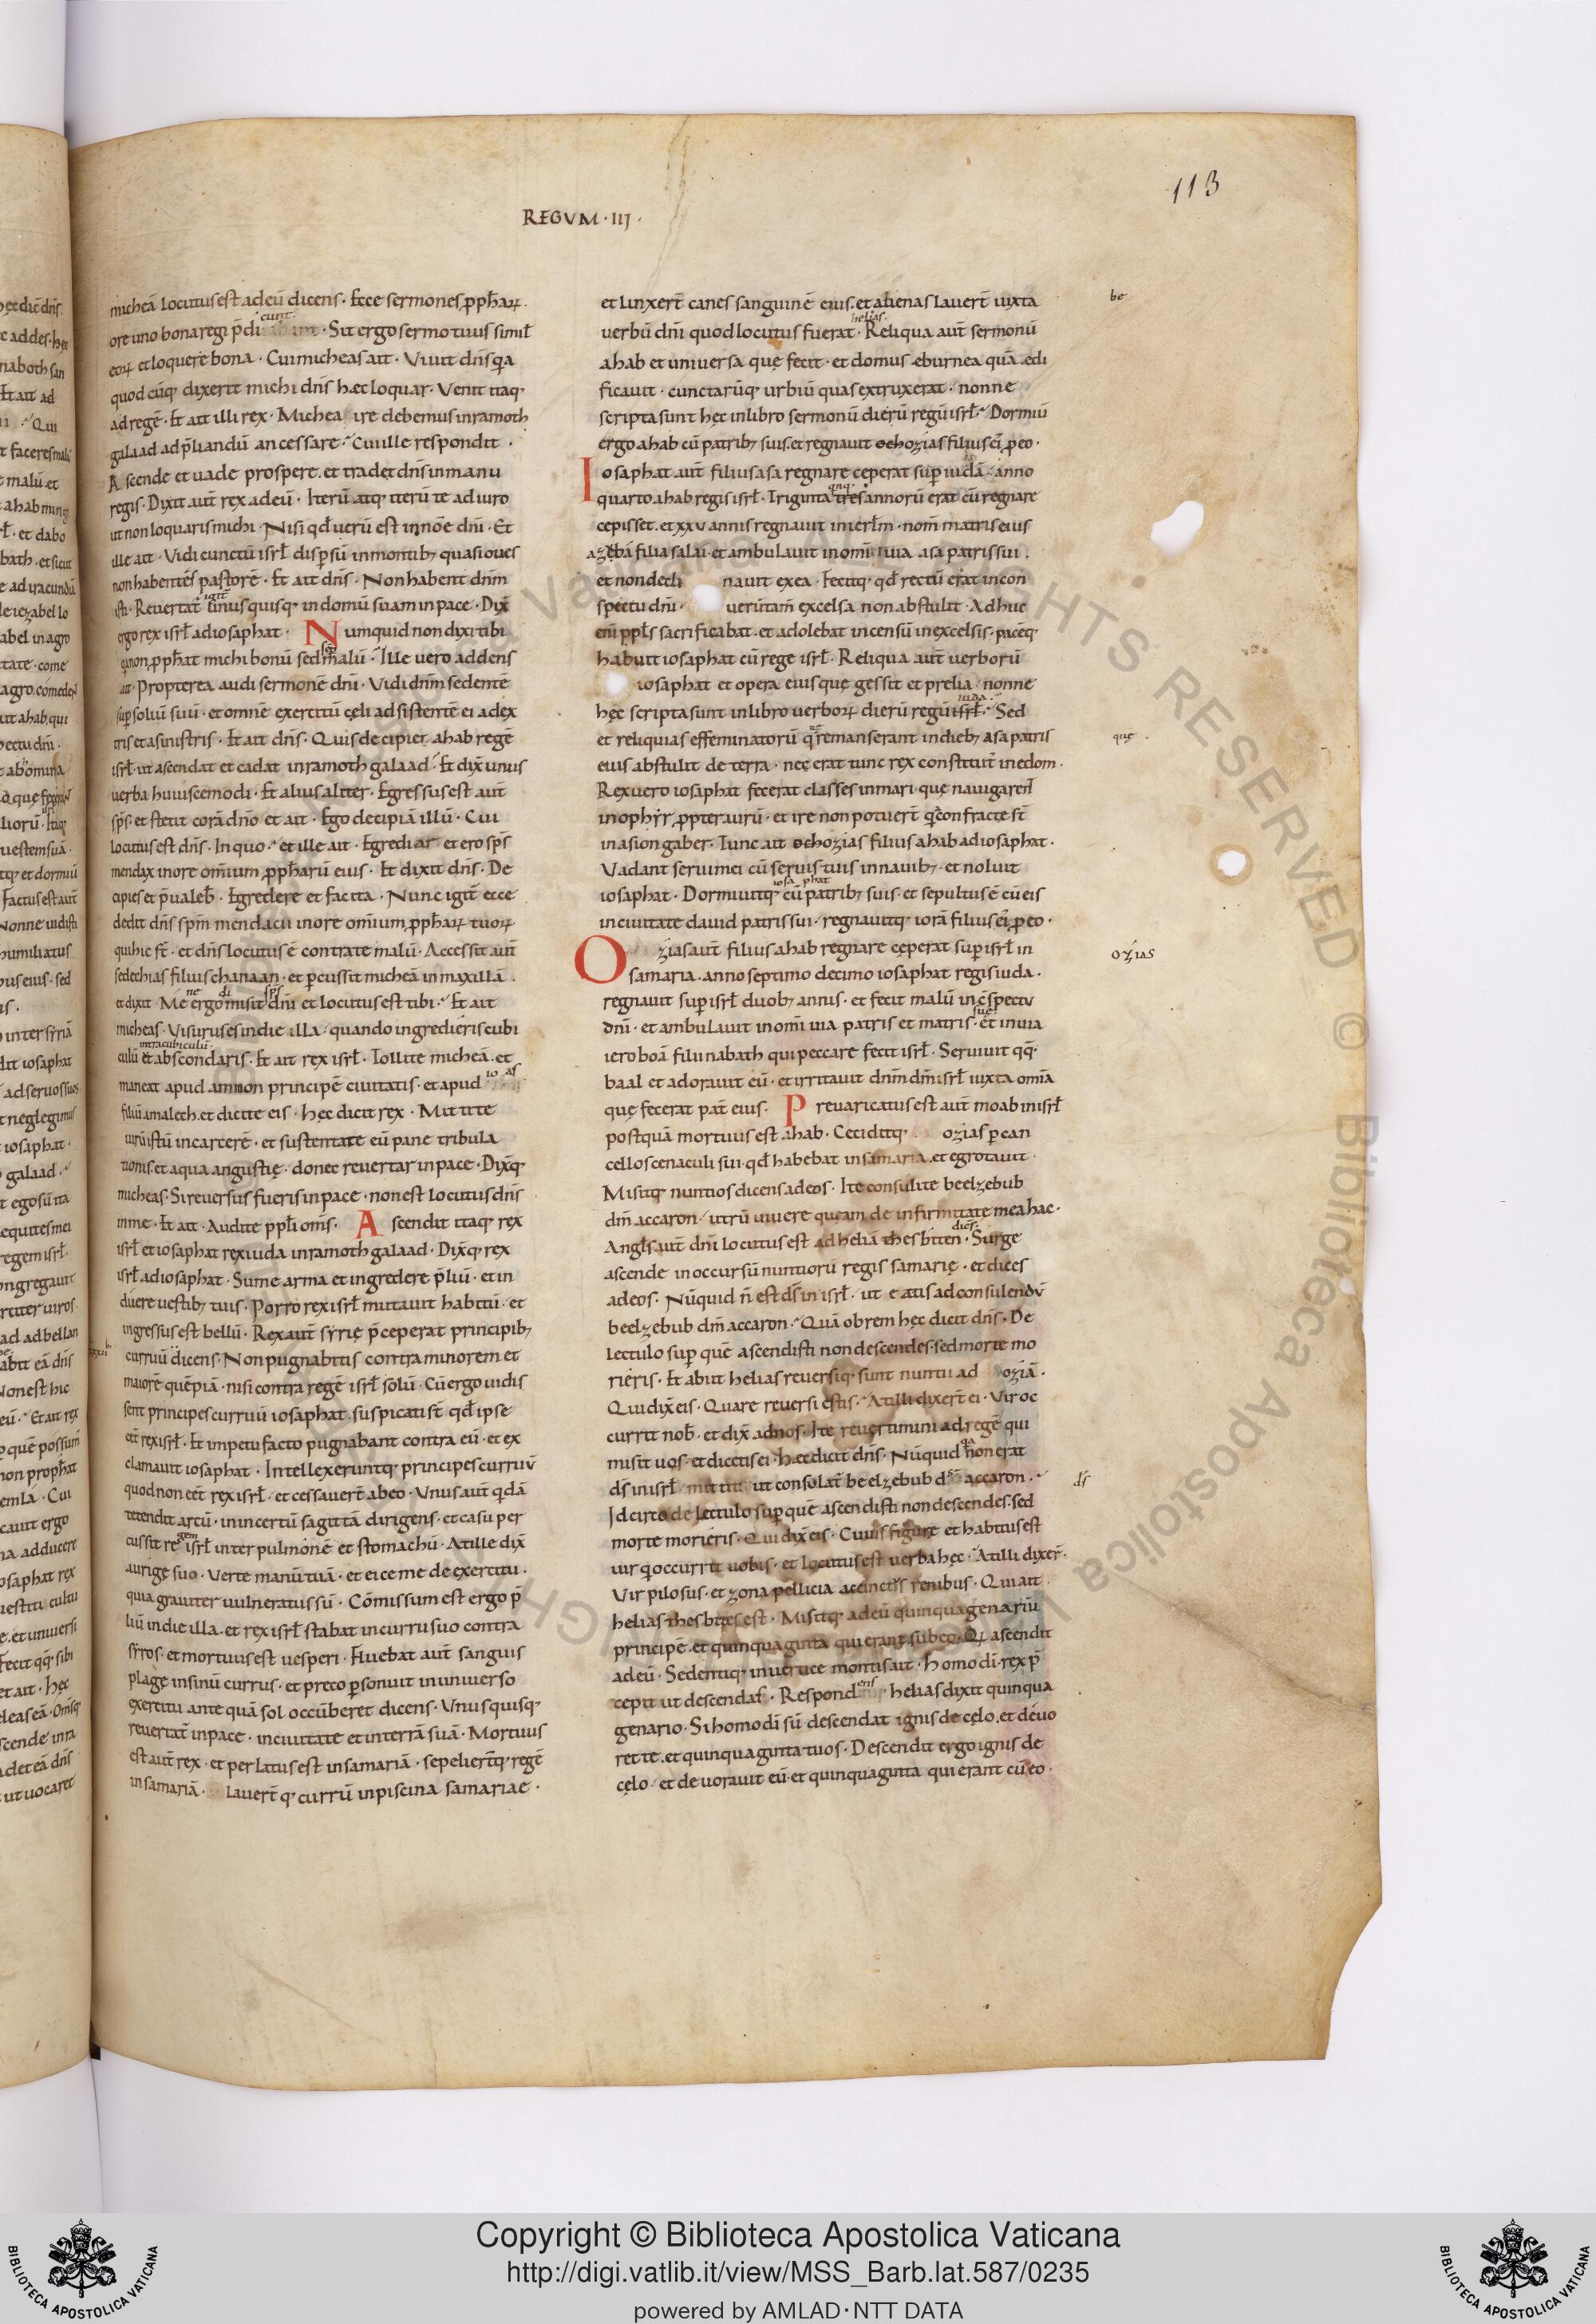 113
REGVM · III ·
micheā locutus est ad eū dicens · Ecce sermones ꝓph̄aꝝ ·
ore uno bona regi p̄di cunt · Sit ergo sermo tuus simil̄
eoꝝ et loquere bona · Cui micheas ait · Viuit dn̄s q̄a
quodcūq; dixerit michi dn̄s hæc loquar · Venit itaq;
ad regē · Et ait illi rex · Michea ire debemus in ramoth
galaad ad p̄liandū an cessare · Cui ille respondit ·
Ascende et uade prospere · et tradet dn̄s in manu
regis · Dixit aut̄ rex ad eū · Iterū atq; iterū te adiuro
ut non loquaris michi · Nisi qđ uerū est in nōe dn̄i · Et
ille ait · Vidi cunctū isrł dispsū in montib; quasi oues
non habentes pastorē · Et ait dn̄s · Non habent dn̄m
isti · Reuertat̄ igit̄ unusquisq; in domū suam in pace · Dix̄
ergo rex isrł ad iosaphat · Numquid non dixi tibi
quia non ꝓph̄at michi bonū sed semp malū · Ille uero addens
ait · Propterea audi sermonē dn̄i · Vidi dn̄m sedentē
sup soliū suū · et omnē exercitū cęli adsistentē ei a dex
tris et a sinistris · Et ait dn̄s · Quis decipiet ahab regē
isrł ut ascendat et cadat in ramoth galaad · Et dix̄ unus
uerba huiuscemodi · Et alius aliter · Egressus est aut̄
sp̄s · et stetit corā dn̄o et ait · Ego decipiā illū · Cui
locutus est dn̄s · In quo · et ille ait · Egrediar et ero sp̄s
mendax in ore om̄ium ꝓph̄arū eius · Et dixit dn̄s · De
cipies et p̄ualeb̄ · Egredere et fac ita · Nunc igit̄ ecce
dedit dn̄s sp̄m mendacii in ore om̄ium ꝓph̄aꝝ tuoꝝ
qui hic st̄ · et dn̄s locutus ē contra te malū · Accessit aut̄
sedechias filius chanaan · et pcussit micheā in maxillā ·
et dixit · Me ne ergo di misit sp̄s dn̄i et locutus est tibi · Et ait
micheas · Visurus es in die illa · quando ingredieris cubi
culū intra cubiculū · et abscondaris · Et ait rex isrł · Tollite micheā · et
maneat apud ammon principē ciuitatis · et apud io as
filiū amalech · et dicite eis · hęc dicit rex · Mittite
uirū istū in carcerē · et sustentate eū pane tribula
tionis et aqua angustię · donec reuertar in pace · Dix̄q;
micheas · Si reuersus fueris in pace · non est locutus dn̄s
in me · Et ait · Audite ppłi om̄s · Ascendit itaq; rex
isrł et iosaphat rex iuda in ramoth galaad · Dix̄q; rex
isrł ad iosaphat · Sume arma et ingredere p̄liū · et in
duere uestib; tuis · Porro rex isrł mutauit habitū · et
ingressus est bellū · Rex aut̄ syrię p̄ceperat principib;
curruū dicens · Non pugnabitis contra minorem et
maiorē quēpiā · nisi contra regē isrł solū · Cū ergo uidis
sent principes curruū iosaphat suspicati st̄ qđ ipse
eēt rex isrł · Et impetu facto pugnabant contra eū · et ex
clamauit iosaphat · Intellexeruntq; principes curruū
quod non eēt rex isrł · et cessauert̄ ab eo · Vnus aut̄ q̄dā
tetendit arcū · in incertū sagittā dirigens · et casu per
cussit regem isrł inter pulmonē et stomachū · At ille dix̄
aurigę suo · Verte manū tuā · et eice me de exercitu ·
quia grauiter uulneratus sū · Cōmissum est ergo p̄
liū in die illa · et rex isrł stabat in curru suo contra
syros · et mortuus est uesperi · Fluebat aut̄ sanguis
plage in sinū currus · et preco psonuit in uniuerso
exercitu ante quā sol occūberet dicens · Vnusquisq;
reuertat̄ in pace · in ciuitate et in terrā suā · Mortuus
est aut̄ rex · et perlatus est in samariā · sepeliert̄q; regē
in samariā · Lauert̄q; currū in piscina samariae ·
et linxert̄ canes sanguinē eius · et abenas lauert̄ iuxta
be
verbū dn̄i quod locutus fuerat helias · Reliqua aut̄ sermonū
ahab et uniuersa quę fecit · et domus eburnea quā ædi
ficauit · cunctarūq; urbiū quas extruxerat · nonne
scripta sunt hęc in libro sermonū dierū regū isrł · Dormiū
ergo ahab cū patrib; suis · et regnauit ochozias filius ei; ꝓ eo ·
Iosaphat aut̄ filius asa regnare cęperat sup iudā · anno
quarto ahab regis isrł · Triginta qnq; tres annorū erat cū regnare
cepisset · et xxv annis regnauit in ierłm · nom̄ matris eius
azęba filia salai · et ambulauit in om̄i uia asa patris sui ·
et non decli nauit ex ea · Fecitq; qđ rectū erat in con
spectu dn̄i · uerūtam̄ excelsa non abstulit · Adhuc
eni̅ ppłs sacrificabat · et adolebat incensū in excelsis · pacēq;
habuit iosaphat cū rege isrł · Reliqua aut̄ uerborū
iosaphat et opera eius quę gessit et prelia · nonne
hęc scripta sunt in libro uerboꝝ dierū regū iuda isrł · Sed
et reliquias effeminatorū q̄ remanserant in dieb; asa patris
quę ·
eius abstulit de terra · nec erat tunc rex constitut̄ in edom ·
Rex uero iosaphat fecerat classes in mari · quę nauigarent
in ophyr ꝓpter aurū · et ire non potuert̄ q̄ confracte st̄
in asiongaber · Tunc ait ochozias filius ahab ad iosaphat ·
Vadant serui mei cū seruis tuis in nauib; · et noluit
iosaphat · Dormiuitq; iosaphat cū patrib; suis · et sepultus ē cū eis
in ciuitate dauid patris sui · regnauitq; iorā filius ei; ꝓ eo ·
Ozias aut̄ filius ahab regnare cęperat sup isrł in
ozias
samaria · anno septimo decimo iosaphat regis iuda ·
regnauit sup isrł duob; annis · et fecit malū in c̄spectu
dn̄i · et ambulauit in om̄i uia patris et matris suę · et in uia
ieroboā filii nabath qui peccare fecit isrł · Seruiuit qq;
baal et adorauit eū · et irritauit dn̄m dm̄ isrł iuxta om̄ia
quę fecerat pat̄ eius · Preuaricatus est aut̄ moab in isrł
postquā mortuus est ahab · Ceciditq; ozias p can
cellos cenaculi sui · qđ habebat in samaria · et egrotauit ·
Misitq; nuntios dicens ad eos · Ite consulite beelzebub
dm̄ accaron · utrū uiuere queam de infirmitate mea hac ·
Angłs aut̄ dn̄i locutus est ad heliā thesbiten dicēs · Surge
ascende in occursū nuntiorū regis samarię · et dices
ad eos · Nūquid n̄ est ds̄ in isrł · ut eatis ad consulendū
beelzebub dm̄ accaron · Quā obrem hęc dicit dn̄s · De
lectulo sup quē ascendisti non descendes · sed morte mo
rieris · Et abiit helias reuersiq; sunt nuntii ad oziā ·
Qui dix̄ eis · Quare reuersi estis · At illi dixert̄ ei · Vir oc
currit nob̄ · et dix̄ ad nos · Ite reuertimini ad regē qui
misit uos · et dicetis ei · hæc dicit dn̄s · Nūquid q̄a non erat
ds̄ in isrł · mittitis ut consulat̄ beelzebub ds̄ accaron ·
ds̄
Idcirco de lectulo sup quē ascendisti non descendes · sed
morte morieris · Qui dix̄ eis · Cuius figurę et habitus est
uir q̄ occurrit uobis · et locutus est uerba hęc · At illi dixer̄ ·
Vir pilosus · et zona pellicia accinctis renibus · Qui ait
helias thesbites est · Misitq; ad eū quinquagenariū
principē · et quinquaginta qui erant sub eo · Q; ascendit
ad eū · Sedentiq; in uertice montis ait · Homo di̅ · rex p̄
cepit ut descendas · Respondens helias dixit quinqua
genario · Si homo di̅ sū · descendat ignis de cęlo · et deuo
ret te · et quinquaginta tuos · Descendit ergo ignis de
cęlo · et deuorauit eū · et quinquaginta qui erant cū eo ·
Copyright © Biblioteca Apostolica Vaticana
http://digi.vatlib.it/view/MSS_Barb.lat.587/0235
powered by AMLAD·NTT DATA